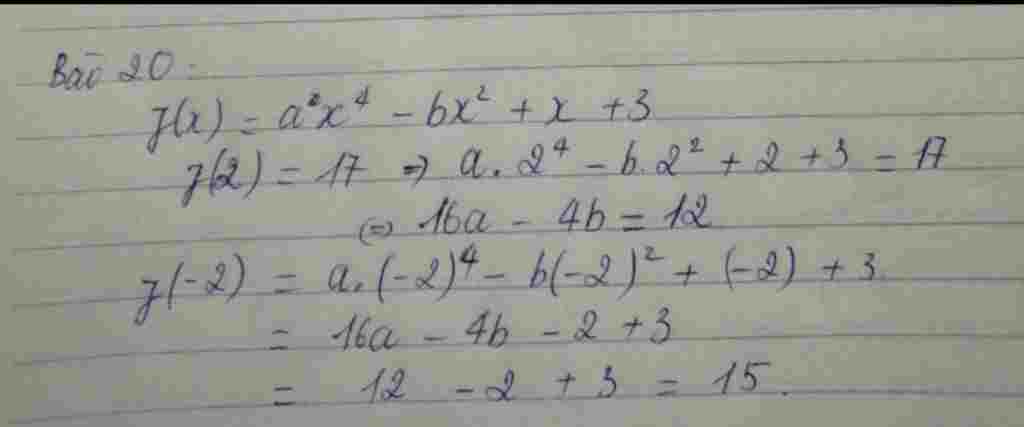 Bài 20:
f(x) = a²x⁴ - bx² + x + 3
f(2) = 17 => a.2⁴ - b.2² + 2 + 3 = 17
(=) 16a - 4b = 12
f(-2) = a.(-2)⁴ - b(-2)² + (-2) + 3.
= 16a - 4b - 2 + 3
= 12 - 2 + 3 = 15.